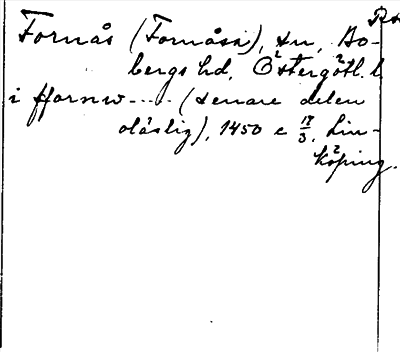 Fornås (Fornåsa), sn, Bo-
bergs hd, Östergötl. l
i ffornw---- (senare delen
oläslig), 1450 e 17/3, Lin-
köping.